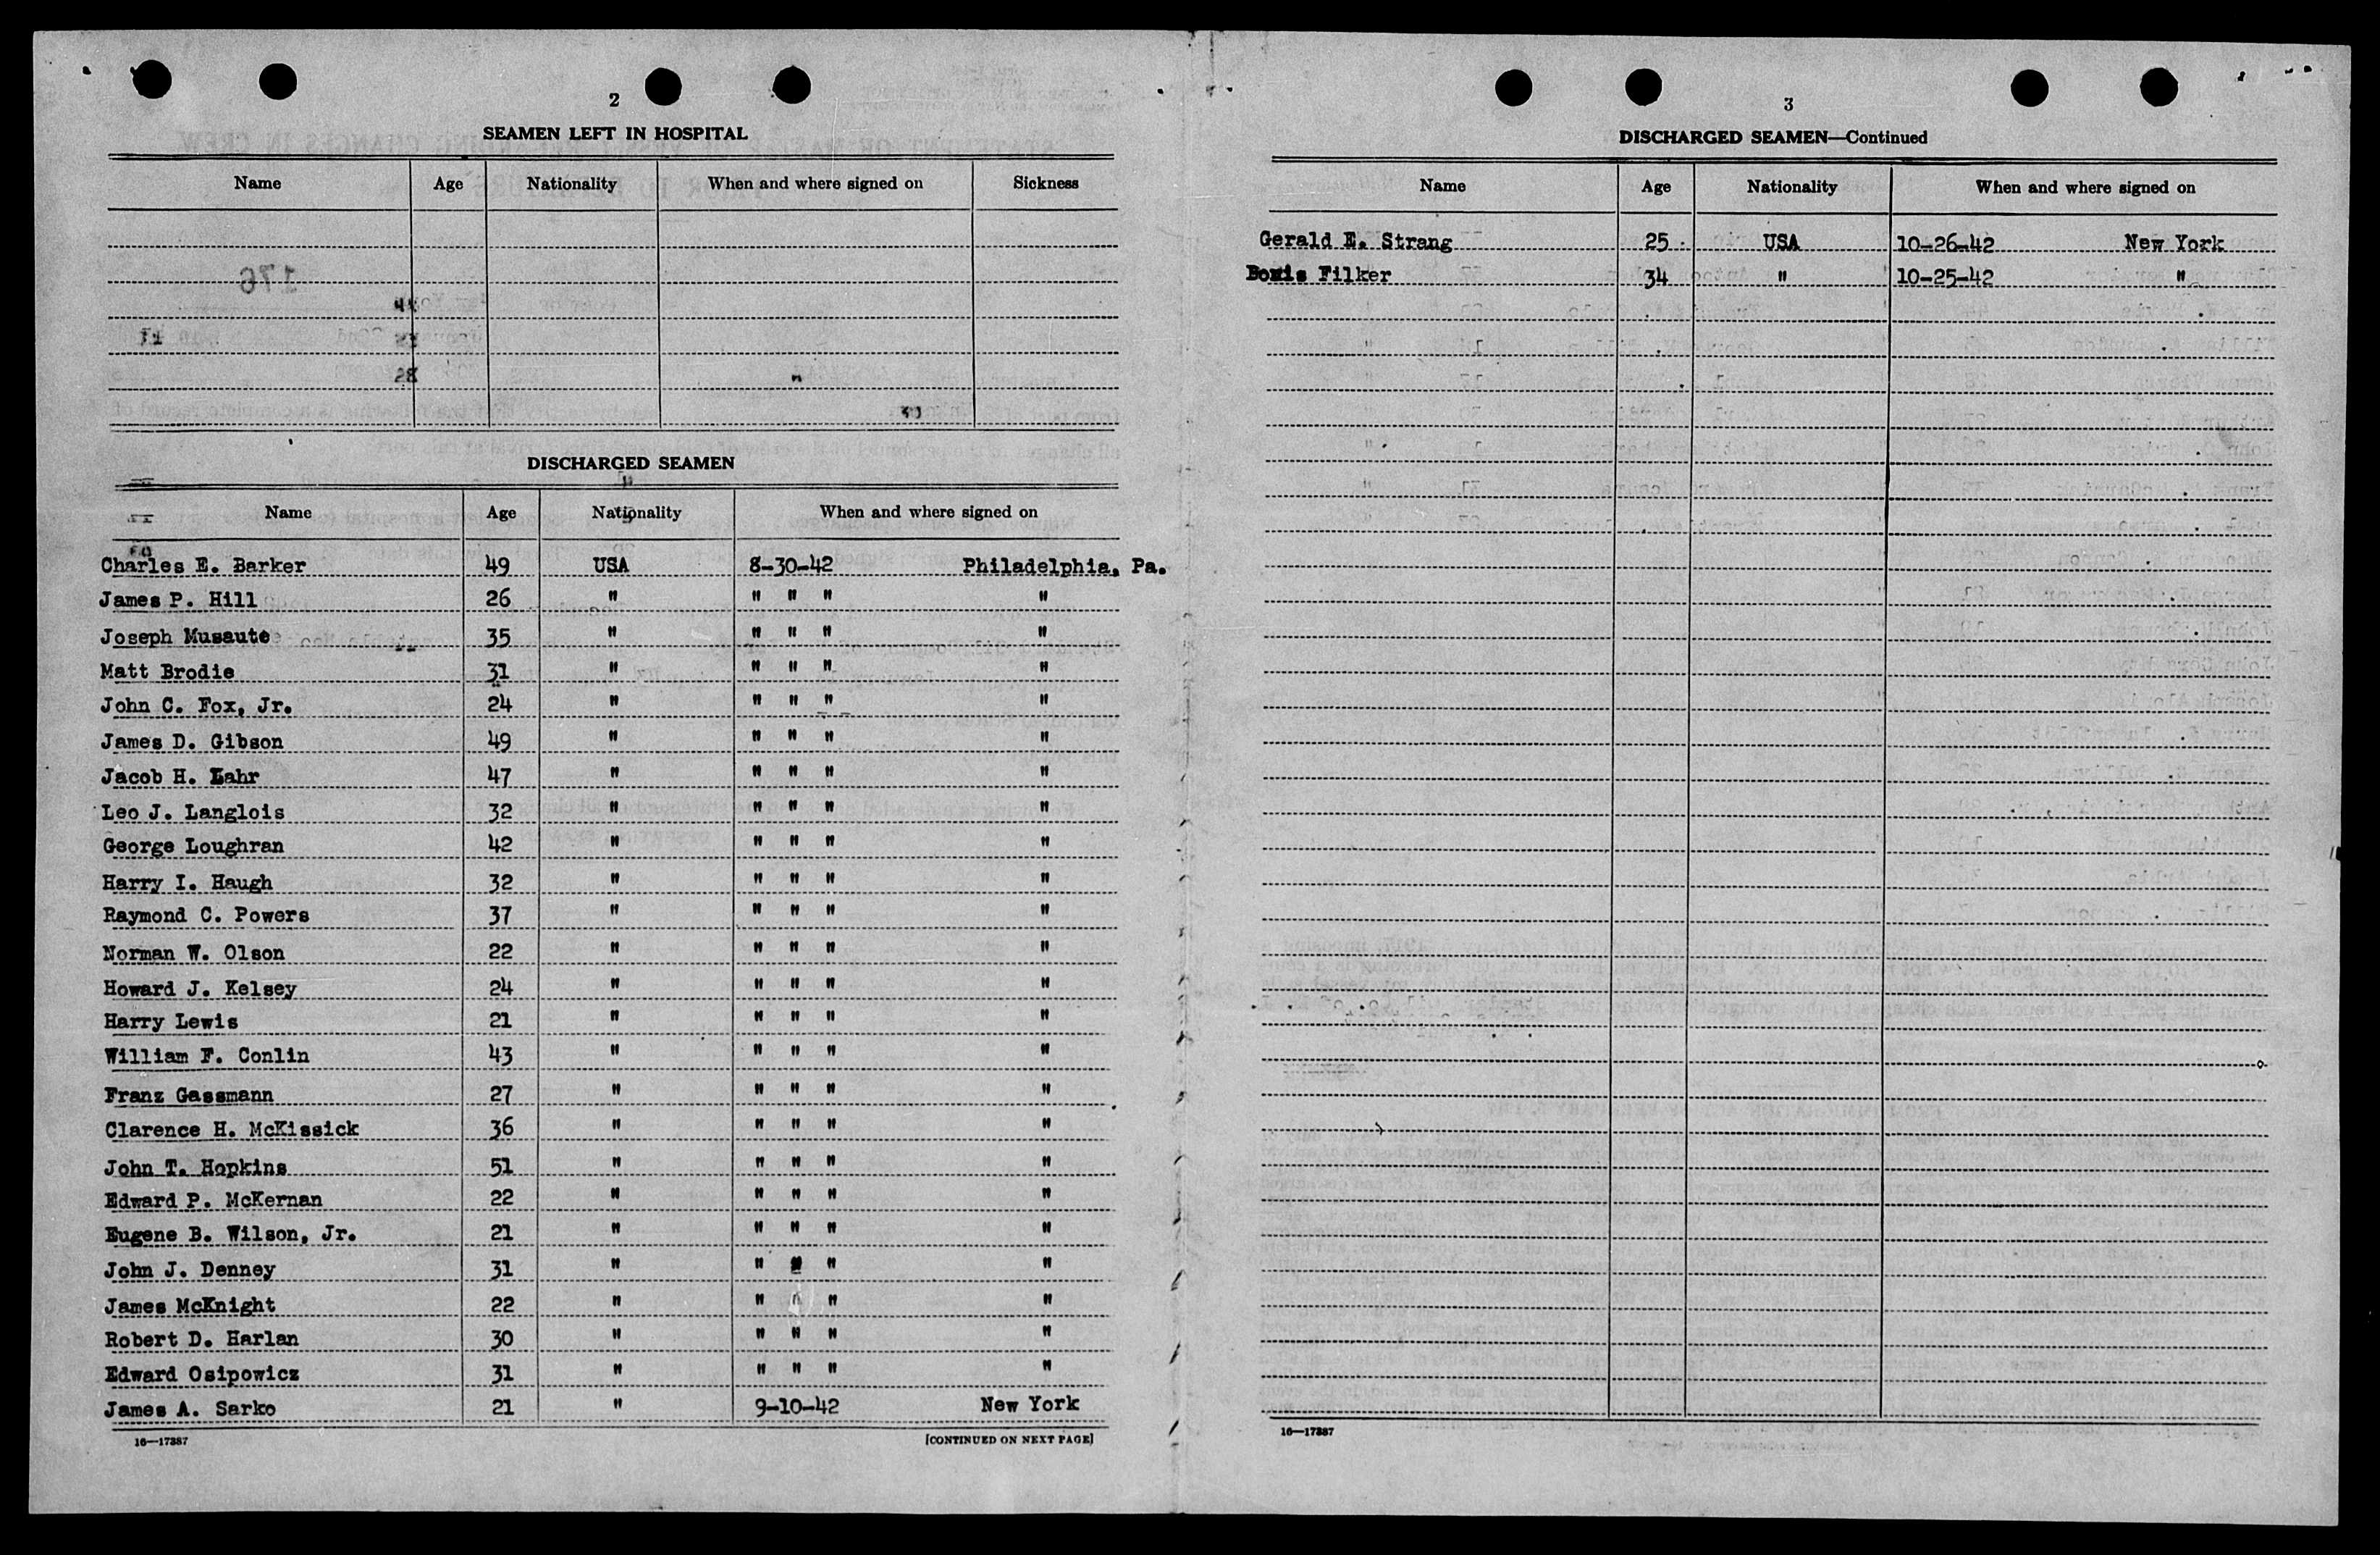 2
SEAMEN LEFT IN HOSPITAL
Name Age Nationality When and where signed on Sickness
DISCHARGED SEAMEN
Name Age Nationality When and where signed on
Charles E. Barker 49 USA 8-30-42 Philadelphia, Pa.
James P. Hill 26 " " " " "
Joseph Musaute 35 " " " " "
Matt Brodie 31 " " " " "
John C. Fox, Jr. 24 " " " " "
James D. Gibson 49 " " " " "
Jacob H. Lahr 47 " " " " "
Leo J. Langlois 32 " " " " "
George Loughran 42 " " " " "
Harry I. Haugh 32 " " " " "
Raymond C. Powers 37 " " " " "
Norman W. Olson 22 " " " " "
Howard J. Kelsey 24 " " " " "
Harry Lewis 21 " " " " "
William F. Conlin 43 " " " " "
Franz Gassmann 27 " " " " "
Clarence H. McKissick 36 " " " " "
John T. Hopkins 51 " " " " "
Edward P. McKernan 22 " " " " "
Eugene B. Wilson, Jr. 21 " " " " "
John J. Denney 31 " " " " "
James McKnight 22 " " " " "
Robert D. Harlan 30 " " " " "
Edward Osipowicz 31 " " " " "
James A. Sarko 21 " 9-10-42 New York
16—17387 [CONTINUED ON NEXT PAGE]
3
DISCHARGED SEAMEN—Continued
Name Age Nationality When and where signed on
Gerald E. Strang 25 USA 10-26-42 New York
Filker 34 " 10-25-42 "
16—17387